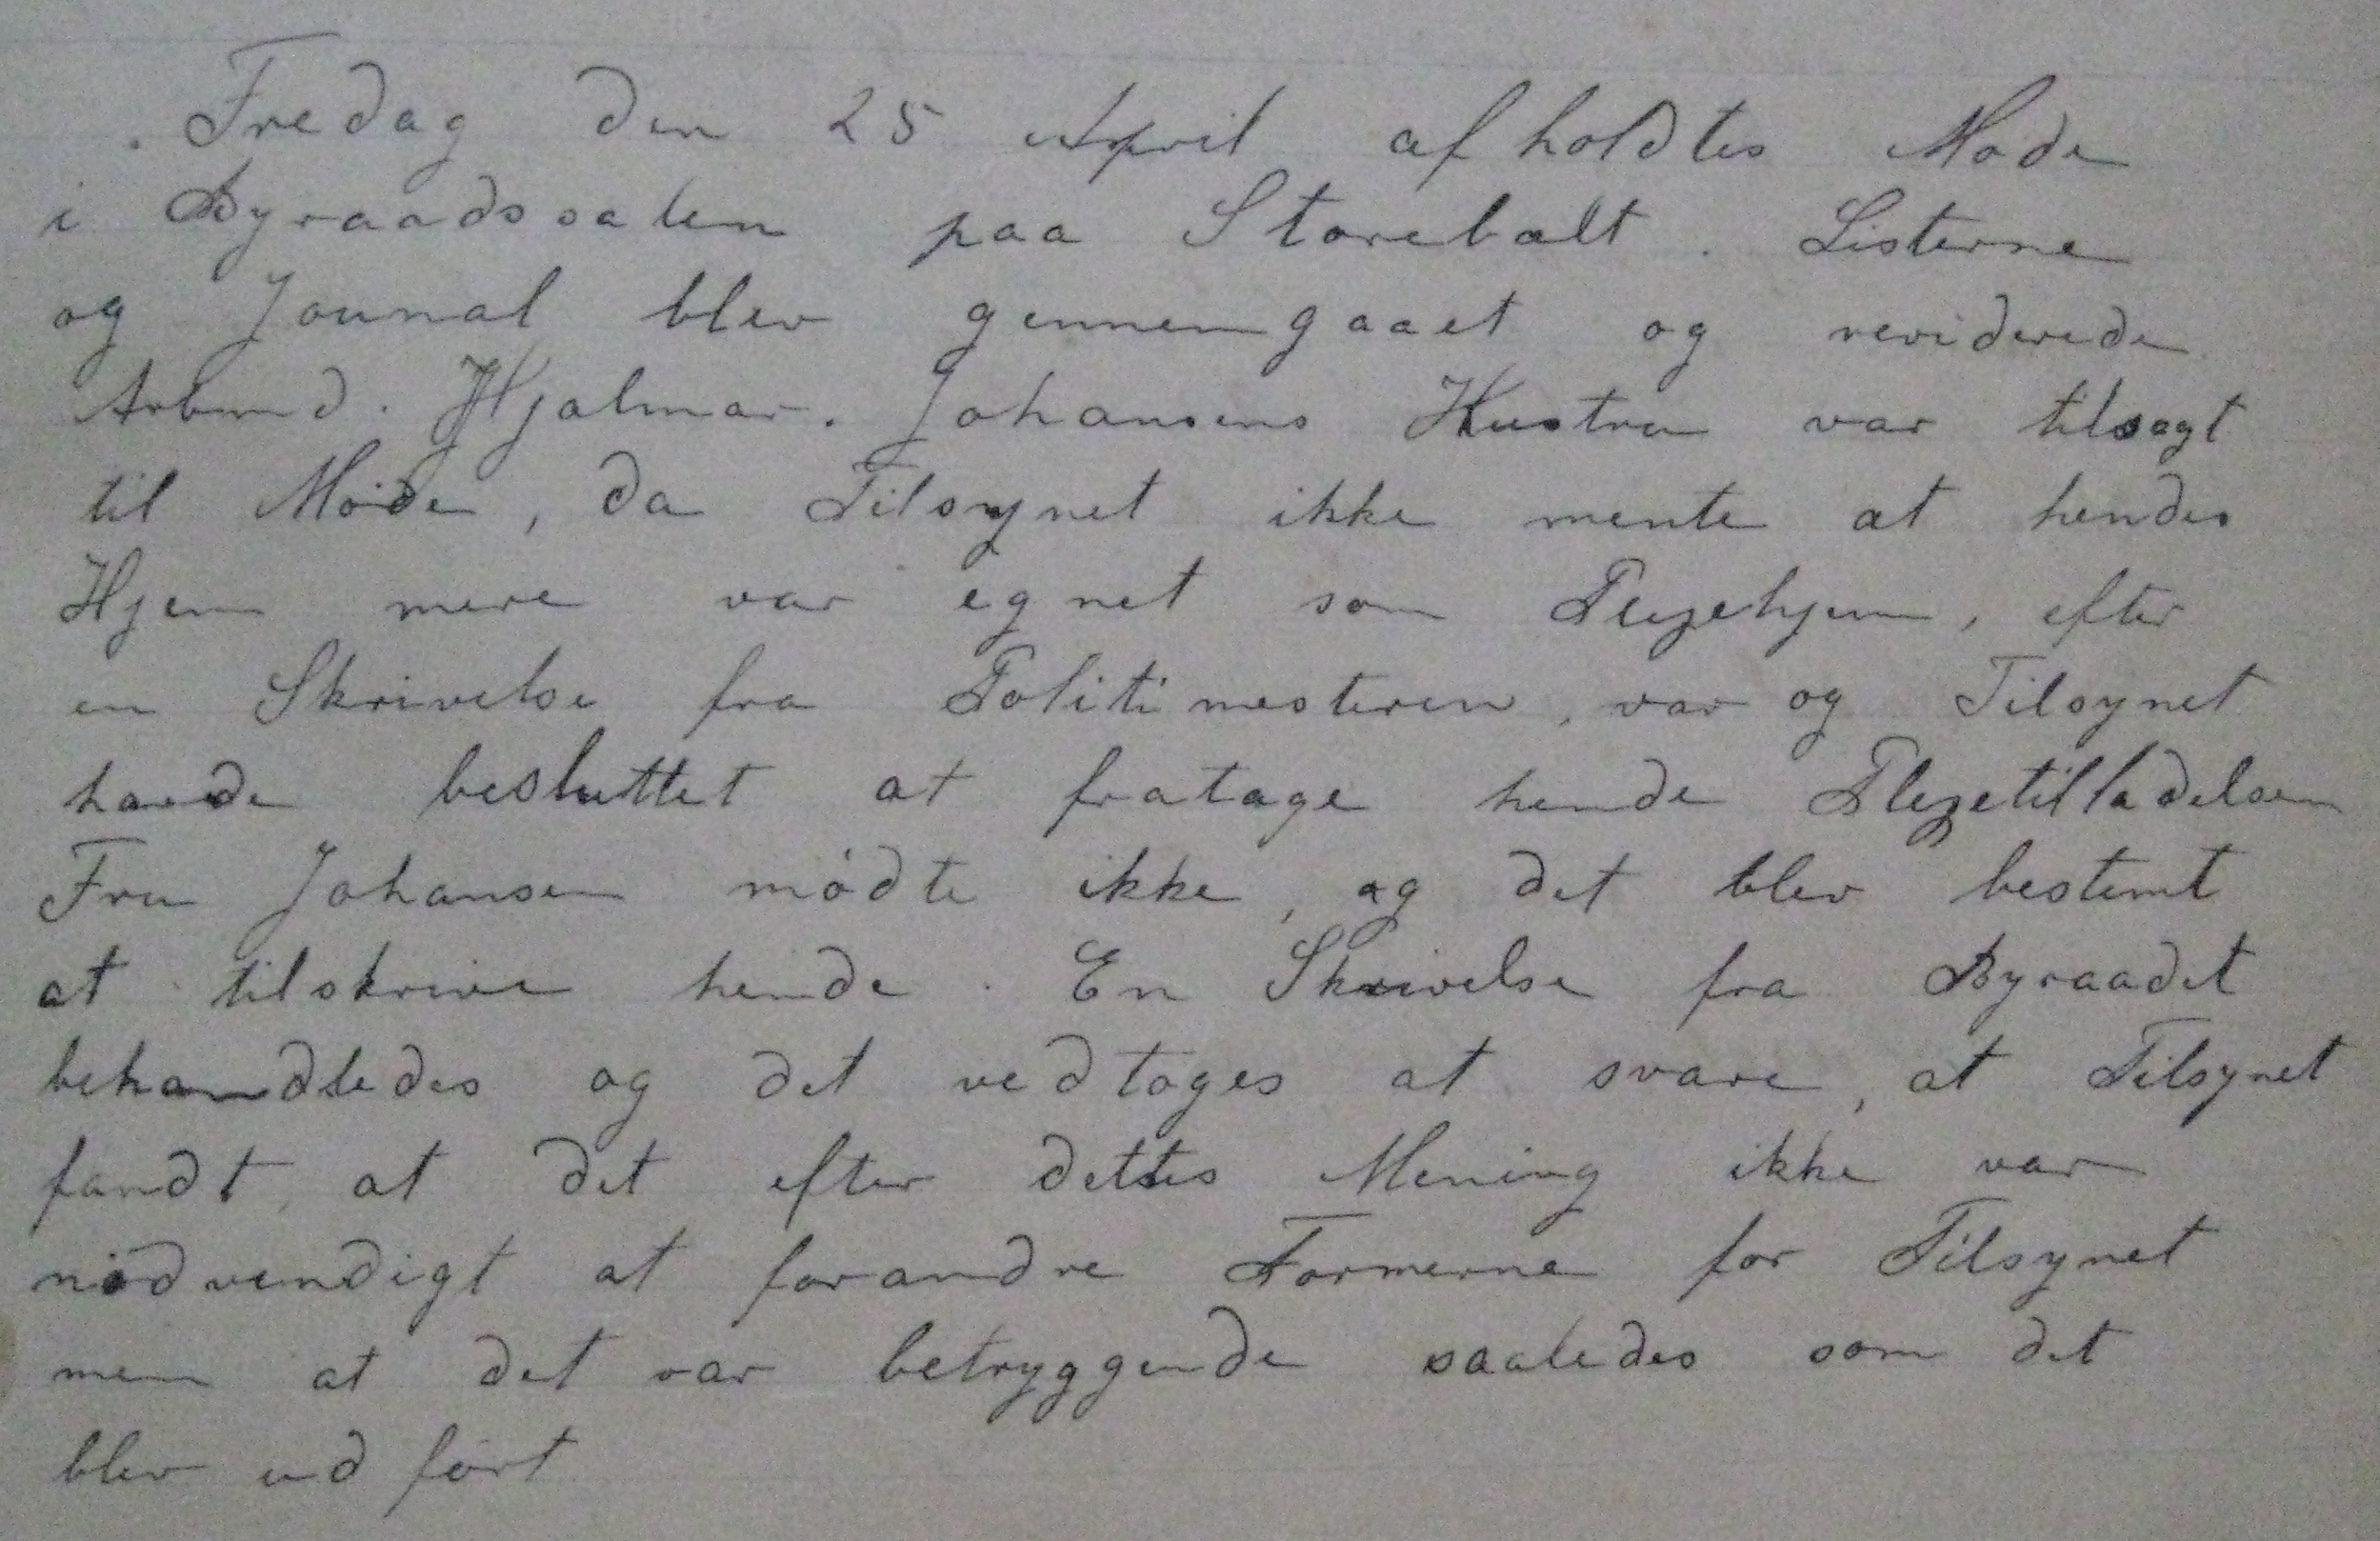 Fredag den 25 April afholdtes Møde
i Byraadssalen paa Storebælt. Listerne
og Jounal blev gennemgaaet og reviderede.
Arbmd. Hjalmar. Johansens Hustru var tilsagt
til Møde, da Tilsynet ikke mente at hendes
Hjem mere var egnet som Plejehjem, efter
en Skrivelse fra Politimesteren, var og Tilsynet
havde besluttet at fratage hende Plejetilladelsen
Fru Johansen mødte ikke, og det blev bestemt
at tilskrive hende. En Skrivelse fra Byraadet
behandledes og det vedtoges at svare, at Tilsynet
fandt, at det efter dettes Mening ikke var
nødvendigt at forandre Formerne for Tilsynet
men at det var betryggende saaledes som det
blev udført